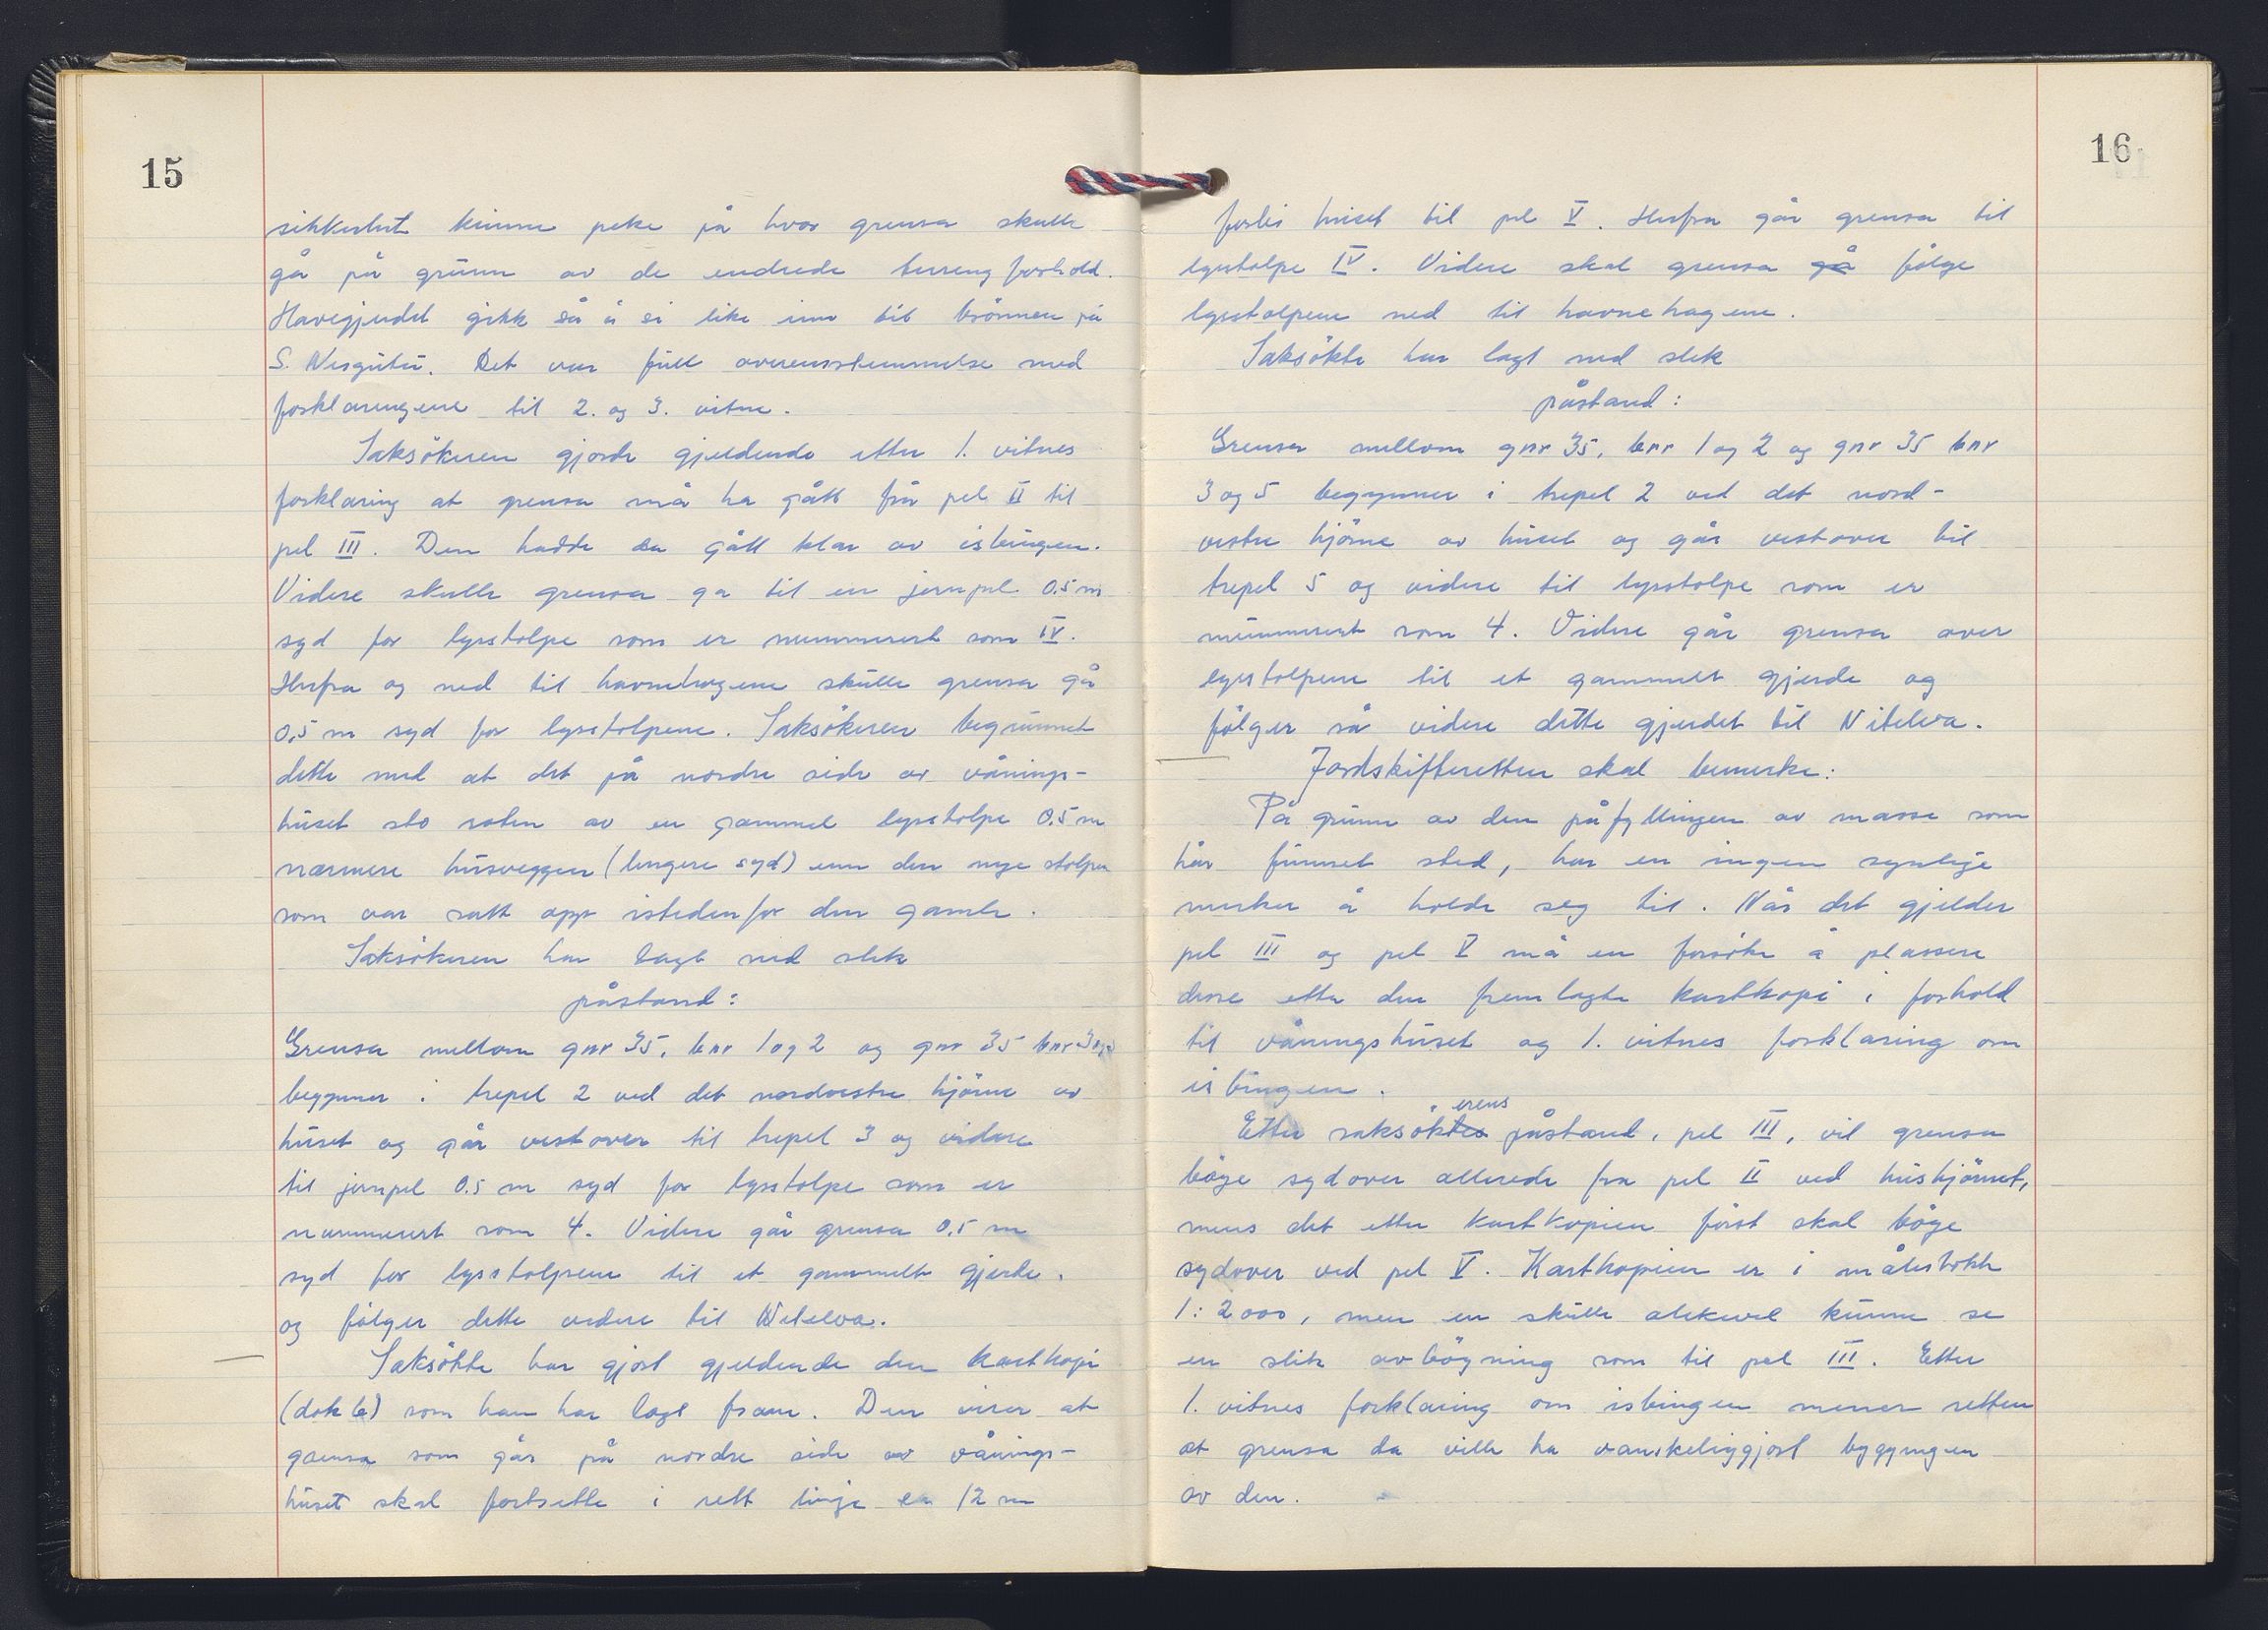 15
sikkerhet kunne peke på hvor grensa skulle
gå på grunn av de endrede terreng forhold.
Havegjerdet gikk så å si like inn til brönnen på
S. Nesgutu. Det var full overensstemmelse med
forklaringene til 2. og 3. vitne.
Saksökeren gjorde gjeldende etter 1. vitnes
forklaring at grensa må ha gått frå pel II til
pel III. Den hadde da gått klar av isbingen.
Videre skulle grensa ga til en jernpel 0.5 m
syd for lysstolpe som er nummerert som IV.
Herfra og ned til havnehagene skulle grensa gå
0,5 m syd for lysstolpene. Saksökeren begrunnet
dette med at det på nordre side av vånings-
huset sto roten av en gammel lysstolpe 0.5 m
nærmere husveggen (lengere syd) enn den nye stolpen
som var satt opp istedenfor den gamle.
Saksökeren har lagt ned slik
påstand:
Grensa mellom gnr 35, bnr 1 og 2 og gnr 35 bnr 3 og 5
begynner i trepel 2 ved det nordvestre hjörne av
huset og går vestover til trepel 3 og videre
til jernpel 0.5 m syd for lysstolpe som er
nummerert som 4. Videre går grensa 0.5 m
syd for lysstolpene til et gammelt gjerde.
og fölger dette videre til Nitelva.
Saksökte har gjort gjeldende den kartkopi
(dok 6) som han har lagt fram. Den viser at
grensa som går på nordre side av vånings-
huset skal fortsette i rett linje ca 12 m
16
forbi huset til pel V. Herfra går grensa til
lysstolpe IV. Videre skal grensa gå fölge
lysstolpene ned til havnehagene.
Saksökte har lagt ned slik
påstand:
Grensa mellom gnr 35, bnr 1 og 2 og gnr 35 bnr
3 og 5 begynner i trepel 2 ved det nord-
vestre hjörne av huset og går vestover til
trepel 5 og videre til lysstolpe som er
nummerert som 4. Videre går grensa over
lysstolpene til et gammelt gjerde og
fölger så videre dette gjerdet til Nitelva.
Jordskifteretten skal bemerke:
På grunn av den påfyllingen av masse som
har funnet sted, har en ingen synlige
merker å holde seg til. Når det gjelder
pel III og pel V må en forsöke å plassere
disse etter den fremlagte kartkopi i forhold
til våningshuset og 1. vitnes forklaring om
isbingen.
erens
Etter saksöktes påstand, pel III, vil grensa
böye sydover allerede fra pel II ved hushjörnet,
mens det etter kartkopien först skal böye
sydover ved pel V. Kartkopien er i målestokk
1:2000, men en skulle alikevel kunne se
en slik avböyning som til pel III. Etter
1. vitnes forklaring om isbingen mener retten
at grensa da ville ha vanskeliggjort byggingen
av den.